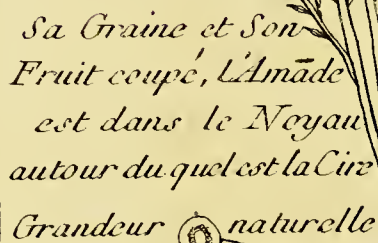 Sa Graine et Son
Fruit coupé, L'Amāde
est dans le Noyau
autour du quel est la Cire
Grandeur naturelle